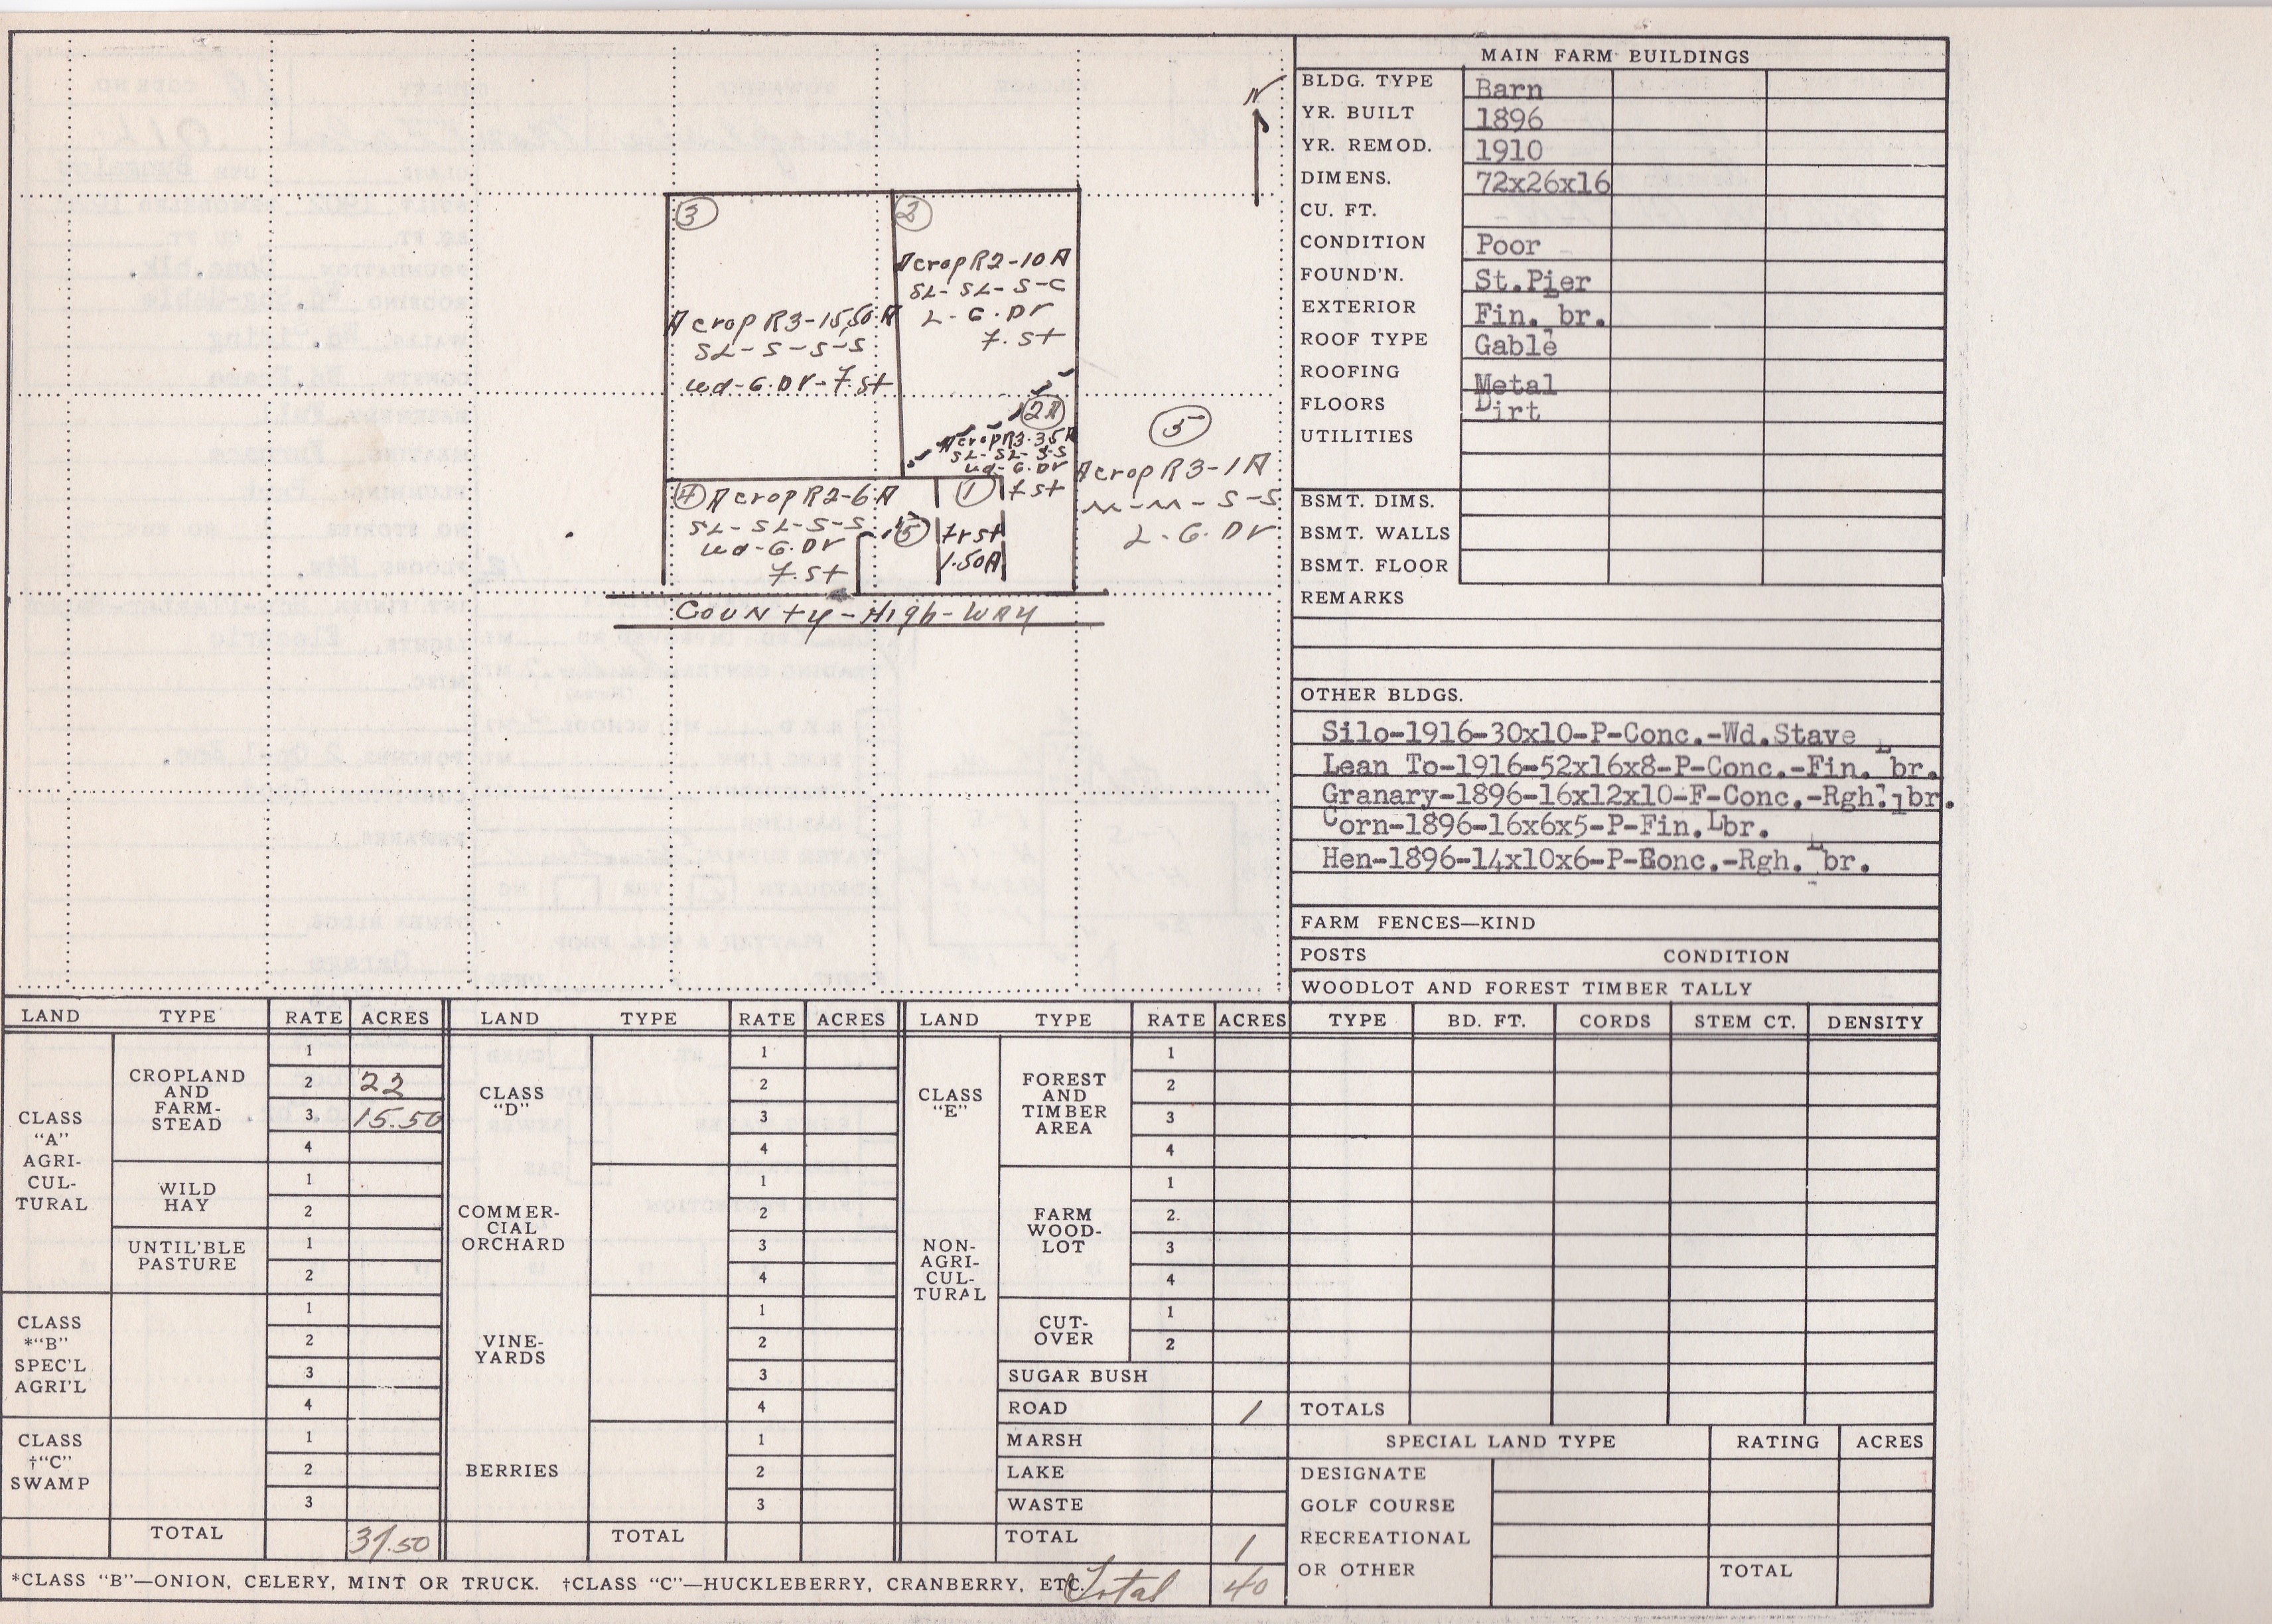 N
3
2
A crop R2-10 A
SL- SL- S-C
L-G.Dr
7. st
A crop R3-15.50 A
SL-S-S-S
wd-G.Dr-7.st
2A
A crop R3-3.5 A
SL-SL-S-S
wd-G.Dr
7 st
5
A crop R3-1 A
m-m-S-S
L-G.Dr
4 A crop R2-6 A
SL-SL-S-S
wd-G.Dr
7.st
5
1
frst
1.50A
COUNTY-HIGH-WAY
MAIN FARM BUILDINGS
BLDG. TYPE Barn
YR. BUILT 1896
YR. REMOD. 1910
DIMENS. 72x26x16
CU. FT.
CONDITION Poor
FOUND'N. St.Pier
EXTERIOR Fin. br.
ROOF TYPE Gable
ROOFING Metal
FLOORS Dirt
UTILITIES
BSMT. DIMS.
BSMT. WALLS
BSMT. FLOOR
REMARKS
OTHER BLDGS.
Silo-1916-30x10-P-Conc.-Wd.Stave
Lean To-1916-52x16x8-P-Conc.-Fin. Lbr.
Granary-1896-16x12x10-F-Conc.-Rgh. lbr.
Corn-1896-16x6x5-P-Fin.Lbr.
Hen-1896-14x10x6-P-Conc.-Rgh. Lbr.
FARM FENCES—KIND
POSTS CONDITION
WOODLOT AND FOREST TIMBER TALLY
TYPE BD. FT. CORDS STEM CT. DENSITY
TOTALS
SPECIAL LAND TYPE RATING ACRES
DESIGNATE
GOLF COURSE
RECREATIONAL
OR OTHER TOTAL
LAND TYPE RATE ACRES
CLASS
"A"
AGRI-
CUL-
TURAL
CROPLAND
AND
FARM-
STEAD
1
2 22
3 15.50
4
WILD
HAY
1
2
UNTIL'BLE
PASTURE
1
2
CLASS
*"B"
SPEC'L
AGRI'L
1
2
3
4
CLASS
†"C"
SWAMP
1
2
3
TOTAL 37.50
LAND TYPE RATE ACRES
CLASS
"D"
1
2
3
4
COMMER-
CIAL
ORCHARD
1
2
3
4
VINE-
YARDS
1
2
3
4
BERRIES
1
2
3
TOTAL
LAND TYPE RATE ACRES
CLASS
"E"
NON-
AGRI-
CUL-
TURAL
FOREST
AND
TIMBER
AREA
1
2
3
4
FARM
WOOD-
LOT
1
2
3
4
CUT-
OVER
1
2
SUGAR BUSH
ROAD 1
MARSH
LAKE
WASTE
TOTAL 1
*CLASS "B"—ONION, CELERY, MINT OR TRUCK. †CLASS "C"—HUCKLEBERRY, CRANBERRY, ETC. Total 40